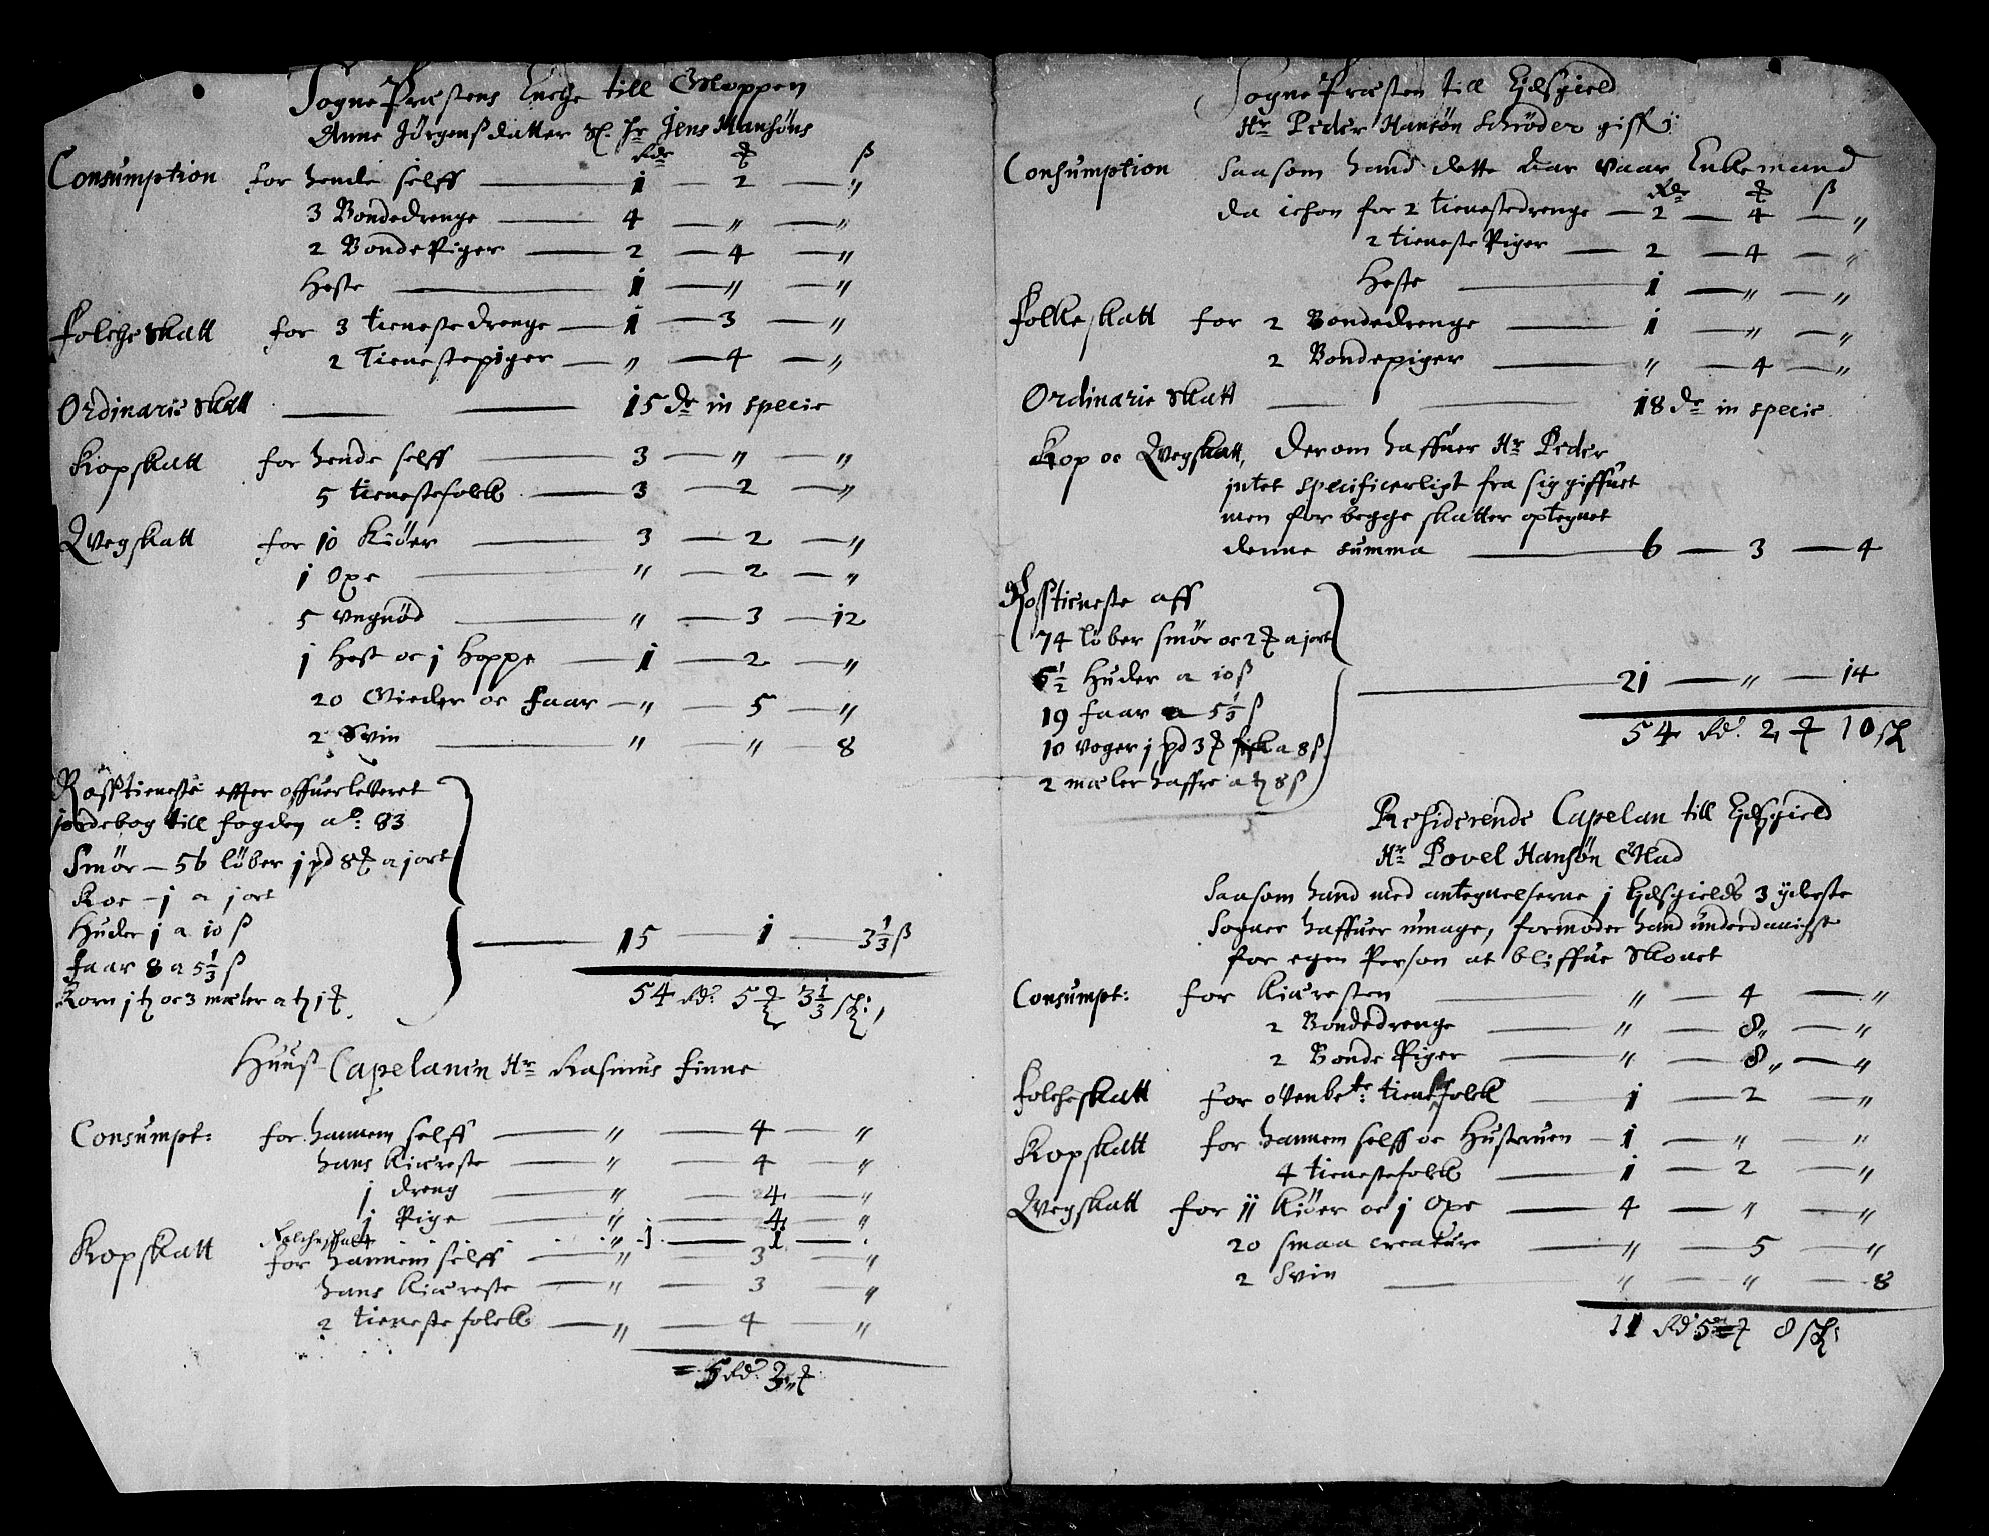 Sogne Præstens Encke till Gloppen
Anne Jørgensdatter Sl. Hr Jens Mansøns
Rdr ß
Consumption for hende selff — 1 — 2 — "
3 Bondedrenge — 4 — " — "
2 BondePiger — 2 — 4 — "
Heste — 1 — " — "
Folche Skatt for 3 tienestedrenge — 1 — 3 — "
2 Tienestepiger — " — 4 — "
Ordinarie Skatt — 15 dr in specie
Kopskatt for hende selff — 3 — " — "
5 tienestefolck — 3 — 2 — "
Qvegskatt for 10 Kiøer — 3 — 2 — "
1 Oxe — " — 2 — "
5 ungnød — " — 3 — 12
1 Hest oc 1 Hoppe — 1 — 2 — "
20 Gieder oc Faar — " — 5 — "
2 Svin — " — " — 8
Rosstieneste effter offuerleveret
jordebog till fogden ao: 83
Smør — 56 løber 1 pd 8 a 1 ort
Koe — 1 a 1 ort
Huder 1 a 10 ß
Faar 8 a 5 1/3 ß
Korn 1 oc 3 mæler a 1
— 15 — 1 — 3 1/3 ß
54 Rd. 5 3 1/3 sk:
Huuß Capelanen Hr Rasmus Finne
Consumpt: for hannem selff — " — 4 — "
hans Kiæreste — " — 4 — "
1 dreng — " — 4 — "
1 Pige — " — 4 — "
Folcheskatt — 1 — 1 — .
Kopskatt for hannem selff — " — 3 — "
hans Kiæreste — " — 3 — "
2 tienestefolck — " — 4 — "
5 Rd. 3
Sogne Præsten till Eidsgield
Hr Peder Hansøn Schrøder gifft:
Consumption Saasom hand dette aar vaar Enkemand
Rdr ß
da ichon for 2 tienestedrenge — 2 — 4 — "
2 tieneste Piger — 2 — 4 — "
Heste — 1 — " — "
Folke skatt for 2 Bondedrenge — 1 — " — "
2 Bondepiger — " — 4 — "
Ordinarie Skatt — 18 dr in specie
Kop oc Qvegskatt, Derom haffuer Hr Peder
intet specificerligt fra sig giffuet
men for begge skatter optegnet
denne summa — 6 — 3 — 4
Rosstieneste aff
74 løber smør oc 2 a 1 ort
6 1/2 Huder a 10 ß
19 faar a 5 1/3 ß
10 voger 1 pd 3 fisk a 8 ß
2 mæler haffre a 8 ß
— 21 — " — 14
54 Rd. 2 10 sk
Residerende Capelan till Eidsgield
Hr Povel Hansøn Glad
Saasom hand med antegnelserne j Eidsgields 3 ydeste
Sogner haffuer umage, formoder hand underdanigst
for egen Person at bliffue skonet
Consumpt: for Kiæresten — " — 4 — "
2 Bondedrenge — " — 8 — "
2 Bonde Piger — " — 8 — "
Folcheskatt for ovenbete: tienestefolck — 1 — 2 — "
Kopskatt for hannem selff oc Hustruen — 1 — " — "
4 tienestefolck — 1 — 2 — "
Qvegskatt for 11 Kiøer oc 1 Oxe — 4 — " — "
20 smaa creature — " — 5 — "
2 Svin — " — " — 8
11 Rd. 5 8 sk: